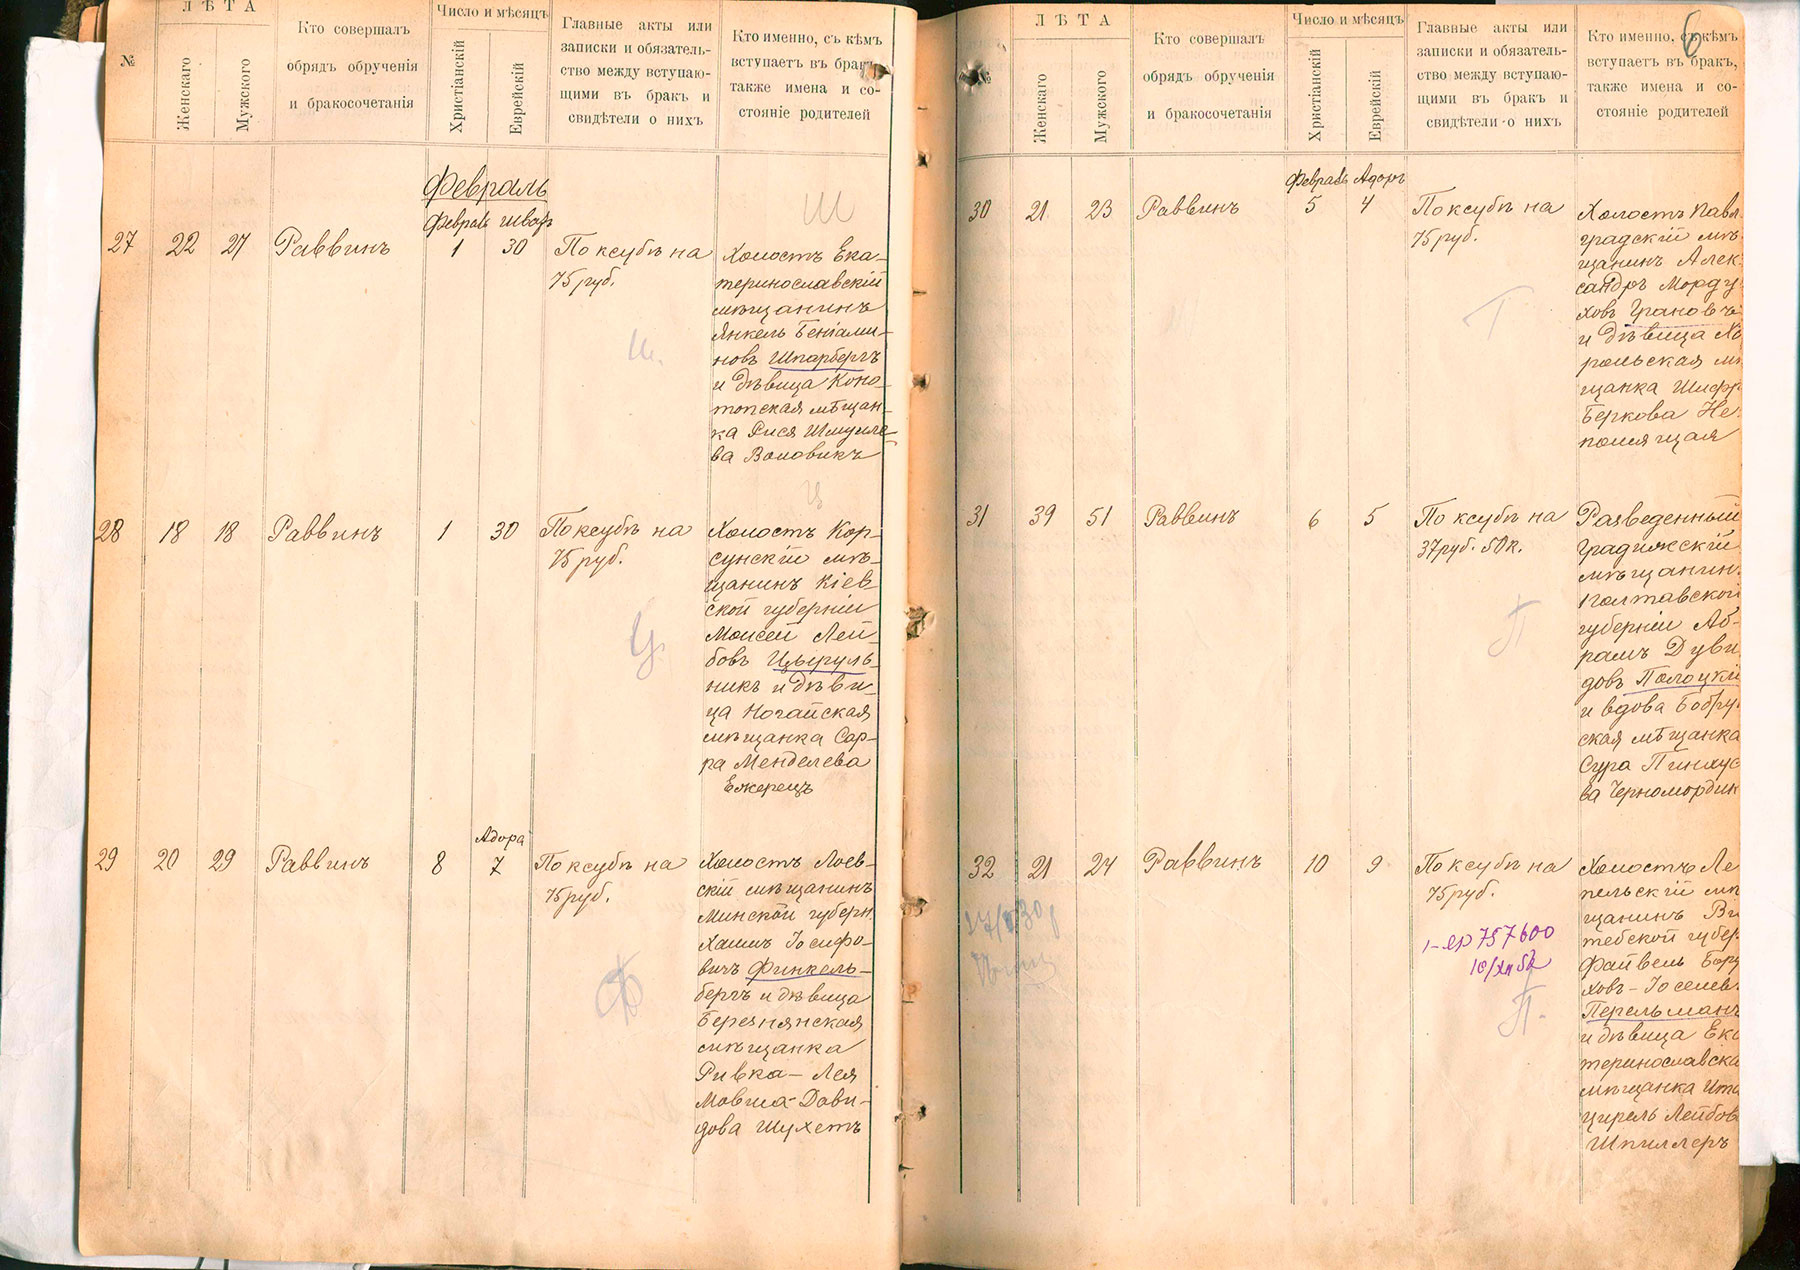 №
ЛѢТА
Женскаго
Мужского
Кто совершалъ
обрядъ обрученія
и бракосочетанія
Число и мѣсяцъ
Христіанскій
Еврейскій
Главные акты или
записки и обязатель-
ство между вступаю-
щими въ бракъ и
свидѣтели о нихъ
Кто именно, съ кѣмъ
вступаетъ въ бракъ,
также имена и со-
стояніе родителей
Февраль
Февраль Шватъ
Ш
27 22 27 Раввинъ 1 30
По ксубѣ на
75 руб.
Ш.
Холостъ Ека-
теринославскій
мѣщанинъ
Янкель Беніами-
новъ Шпарбергъ
и дѣвица Коно-
топская мѣщан-
ка Рися Шмуиле-
ва Воловикъ
Ц
28 18 18 Раввинъ 1 30
По ксубѣ на
75 руб.
Ц
Холостъ Кор-
сунскій мѣ-
щанинъ Кіев-
ской губерніи
Моисей Лей-
бовъ Цыруль-
никъ и дѣви-
ца Ногайская
мѣщанка Сар-
ра Менделева
Ежерецъ
Адора
29 20 29 Раввинъ 8 7
По ксубѣ на
75 руб.
Ф
Холостъ Лоев-
скій мѣщанинъ
Минской губерн.
Хаимъ Іосифо-
вичъ Финкель-
бергъ и дѣвица
Березнянская
мѣщанка
Ривка-Лея
Мовша-Дави-
дова Шухетъ
6
№
ЛѢТА
Женскаго
Мужского
Кто совершалъ
обрядъ обрученія
и бракосочетанія
Число и мѣсяцъ
Христіанскій
Еврейскій
Главные акты или
записки и обязатель-
ство между вступаю-
щими въ бракъ и
свидѣтели о нихъ
Кто именно, съ кѣмъ
вступаетъ въ бракъ,
также имена и со-
стояніе родителей
Февраль Адоръ
30 21 23 Раввинъ 5 4
По ксубѣ на
75 руб.
Г
Холостъ Павл
градскій мѣ-
щанинъ Алек-
сандръ Морду-
ховъ Грановъ
и дѣвица Хо
рольская мѣ
щанка Шифр
Беркова Не
помящая
31 39 51 Раввинъ 6 5
По ксубѣ на
37 руб. 50 к.
П
Разведенный
Градижскій
мѣщанин
Полтавской
губерніи Аб-
рамъ Дуви
довъ Полоцкій
и вдова Бобру
ская мѣщанка
Сура Пинхус
ва Черномордик
32 21 24 Раввинъ 10 9
По ксубѣ на
75 руб.
757600
П.
Холостъ Ле
пельскій мѣ
щанинъ Ви
тебской губер
Файвель Бору
ховъ-Іоселев
Перельманъ
и дѣвица Ека
теринославска
мѣщанка Ита
Цирель Лейбов
Шпиллеръ